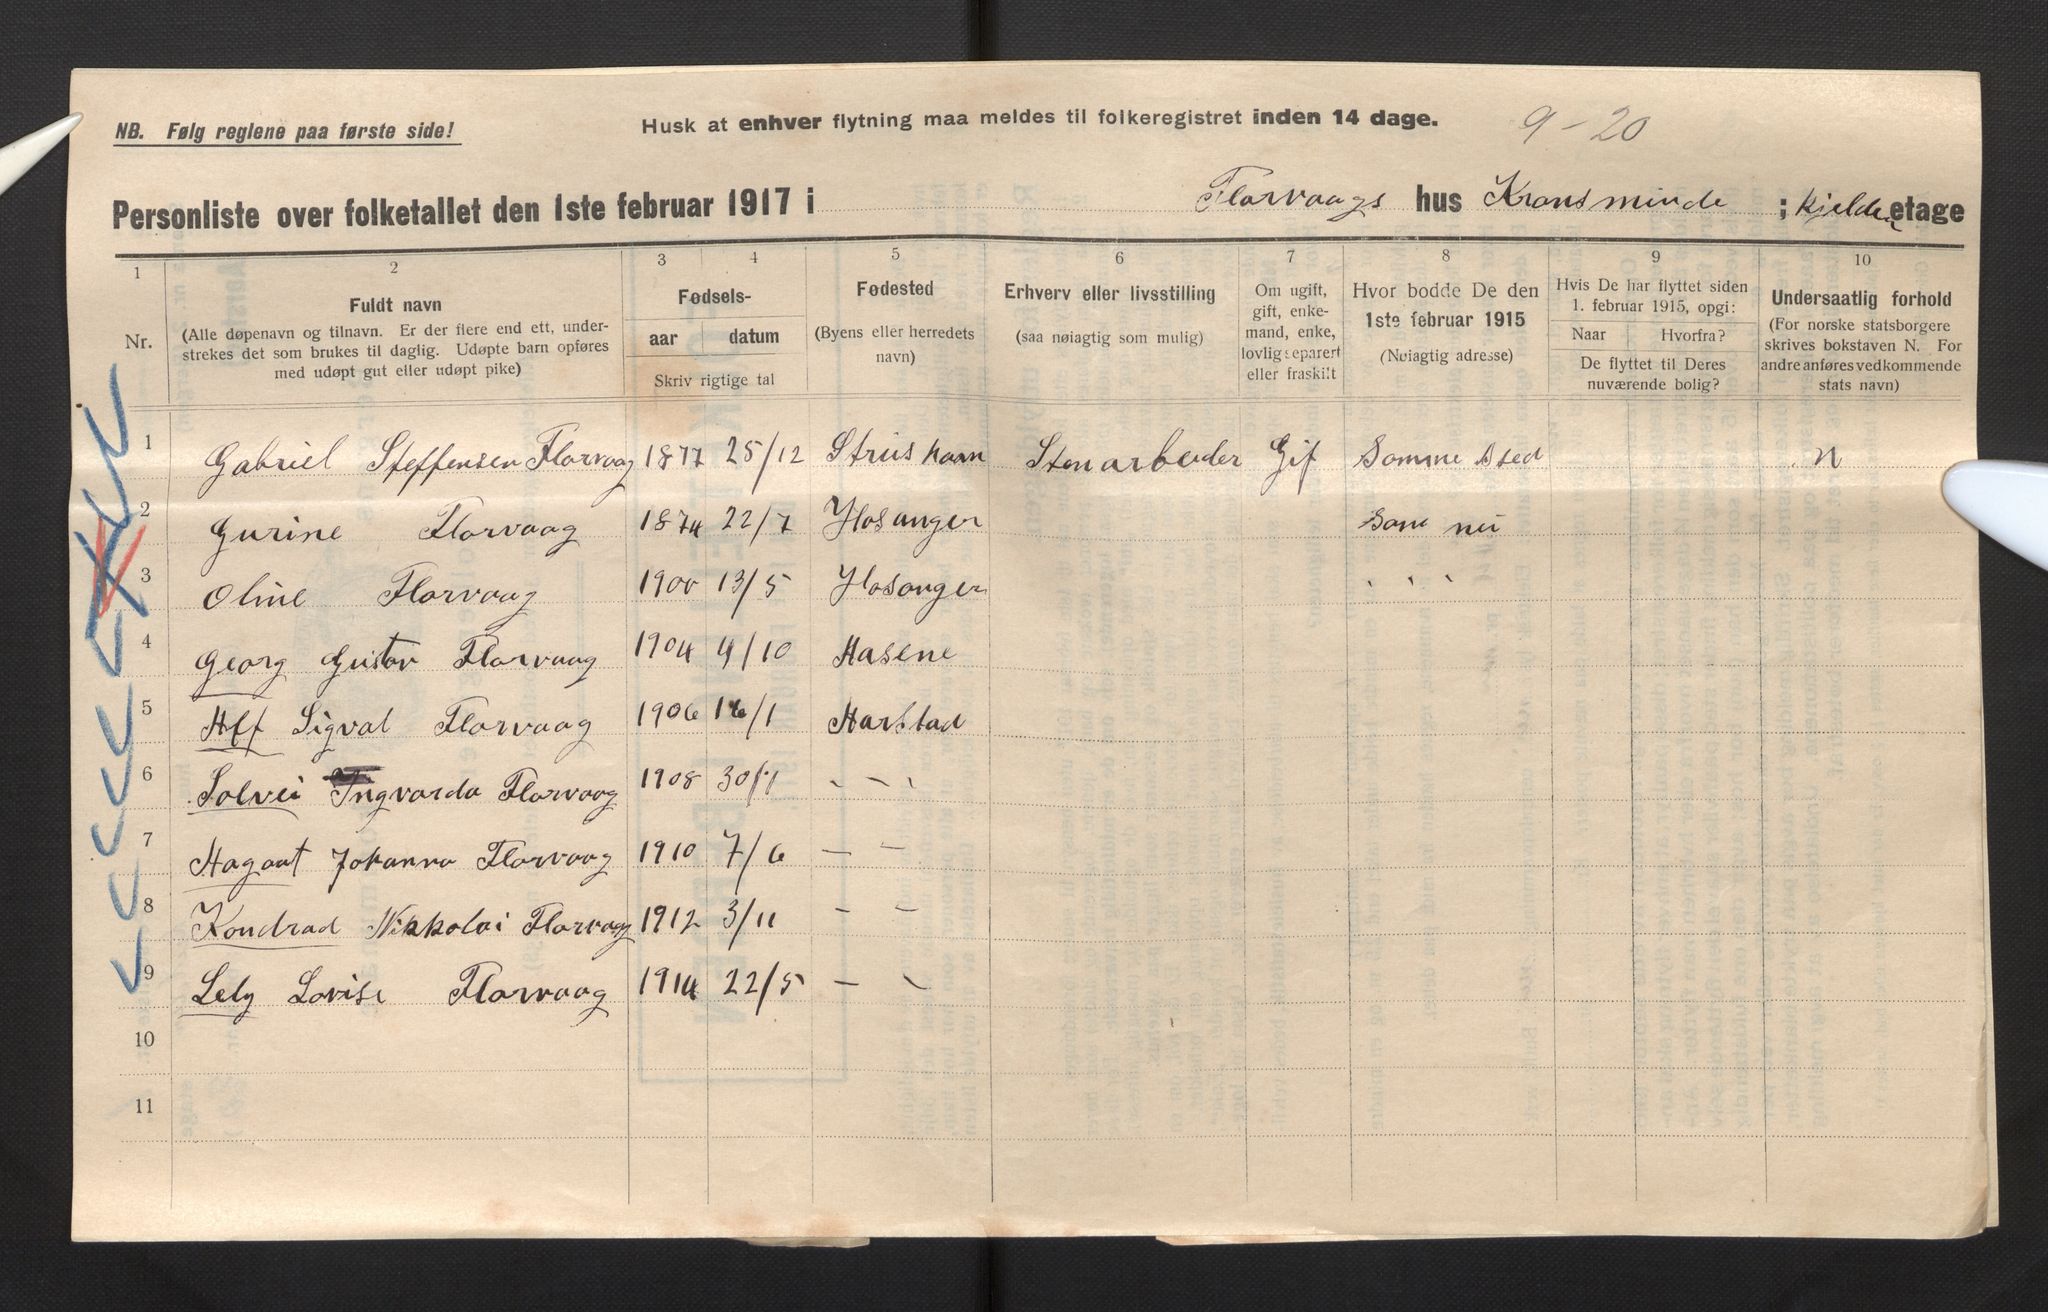 NB. Følg reglene paa første side!
Husk at enhver flytning maa meldes til folkeregistret inden 14 dage.
9-20
Personliste over folketallet den 1ste februar 1917 i Florvaags hus Kronsminde ; kjelder etage
1 2 3 4 5 6 7 8 9 10
Nr.
Fuldt navn
(Alle døpenavn og tilnavn. Er der flere end ett, under-
strekes det som brukes til daglig. Udøpte barn opføres
med udøpt gut eller udøpt pike)
Fødsels-
aar datum
Skriv rigtige tal
Fødested
(Byens eller herredets
navn)
Erhverv eller livsstilling
(saa nøiagtig som mulig)
Om ugift,
gift, enke-
mand, enke,
lovlig separert
eller fraskilt
Hvor bodde De den
1ste februar 1915
(Nøiagtig adresse)
Hvis De har flyttet siden
1. februar 1915, opgi:
Naar Hvorfra?
De flyttet til Deres
nuværende bolig?
Undersaatlig forhold
(For norske statsborgere
skrives bokstaven N. For
andre anføres vedkommende
stats navn)
1 Gabriel Steffensen Florvaag 1877 25/12 Strushavn Stenarbeider Gif Somme Sted N
2 Gurine Florvaag 1874 22/7 Hosanger Som nu
3 Oline Florvaag 1900 13/5 Hosanger " " "
4 Georg Gustav Florvaag 1904 4/10 Aasene
5 Alf Sigval Florvaag 1906 16/1 Harstad
6 Solvei Ingvarda Florvaag 1908 30/1 " " "
7 Hagaat Johanna Florvaag 1910 7/6 — —
8 Kondrad Nikkolai Florvaag 1912 3/11 — —
9 Lely Lovise Florvaag 1914 22/5 — —
10
11